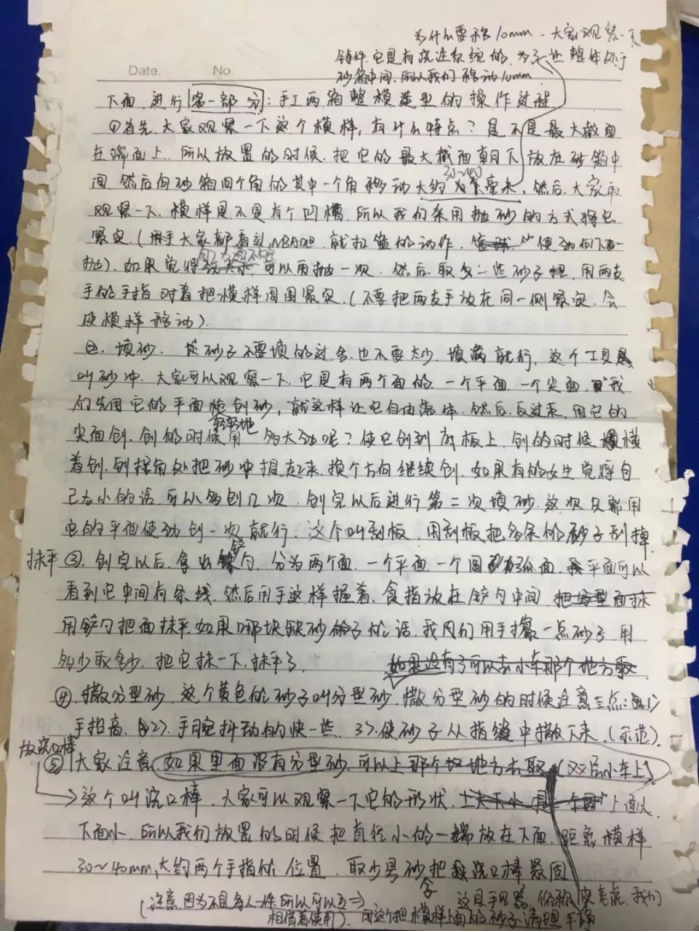 为什么要移10mm. 大家观察一下
铸件它是有浇注系统的. 为了让整体处于
砂箱中间. 所以我们移动10mm.
Date. No.
下面, 进行第一部分: 手工两箱整模造型的操作过程
①首先, 大家观察一下这个模样, 有什么特点? 是不是最大截面
在端面上. 所以放置的时候. 把它的最大截面朝下放在砂箱中
间. 然后向砂箱四个角的其中一个角移动大约 毫米. 然后, 大家再
30~40
观察一下, 模样是不是有个凹槽, 所以我们采用抛砂的方式将它
紧实 (用手大家都看过NBA吧, 就扣篮的动作, 使劲向下
抛). 如果觉得 可以再抛一次. 然后. 取多一些砂子 用两支
手的手指对着把模样周围紧实. (不要把两支手放在同一侧紧实, 会
使模样移动).
②. 填砂. 砂子不要填的过多. 也不要太少. 填满就行. 这个工具
叫砂冲. 大家可以观察一下. 它是有两个面的. 一个平面. 一个尖面. 我
们先用它的平面 刨砂, 就这样让它自由落体. 然后. 反过来. 用它的
尖面刨. 刨的时候用多大劲呢? 使它刨到底板上, 刨的时候
着刨. 到拐角处把砂冲提起来. 换个方向继续刨. 如果有的女生觉得自
己力小的话, 可以多刨几次. 刨完以后进行第二次填砂. 这次只需用
它的平面使劲刨一次就行. 这个叫刮板. 用刮板把多余的砂子刮掉
抹平 ③. 刨完以后, 拿出铲勺. 分为两个面. 一个平面一个圆弧面. 平面可以
看到它中间有条线. 然后用手这样握着. 食指放在铲勺中间
用铲勺把面抹平. 如果哪块缺砂子的话. 我们用手撮一点砂子. 用
多少取多少. 把它抹一下. 抹平了. 如果没有了可以去小车那个地方取
④. 撒分型砂. 这个黄色的砂子叫分型砂. 撒分型砂的时候注意三点: 1>
手抬高. 2>. 手腕抖动的快一些. 3>. 使砂子从指缝中撒下来. (示范).
放浇口棒
⑤ 大家注意 如果里面没有分型砂. 可以上那个 地方去取 (双层小车上)
→这个叫浇口棒. 大家可以观察一下它的形状. 上面大
下面小. 所以我们放置的时候把直径小的一端放在下面. 距离模样
30~40mm. 大约两个手指的位置. 取少量砂把浇口棒紧固
(注意. 因为不是每人一个, 所以可以 这是手风器, 俗称皮老虎. 我们
相互着使用). 用这个把模样上面的砂子清理干净